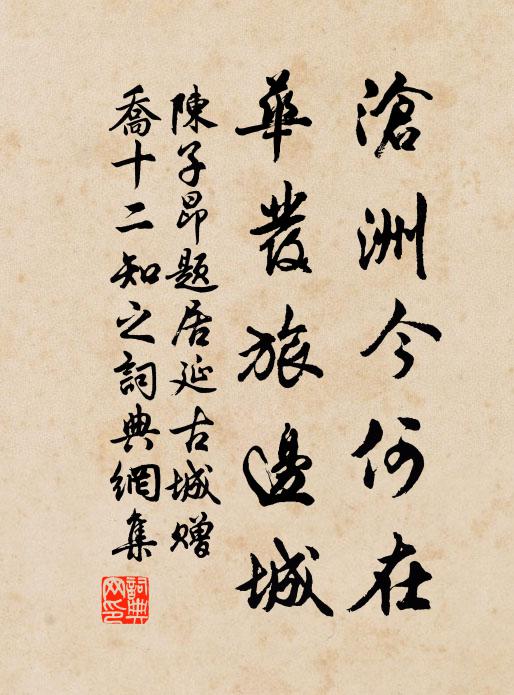 滄洲今何在
華發旅邊城
陳子昂題居延古城贈
喬十二知之詞典網集
詞典
网印